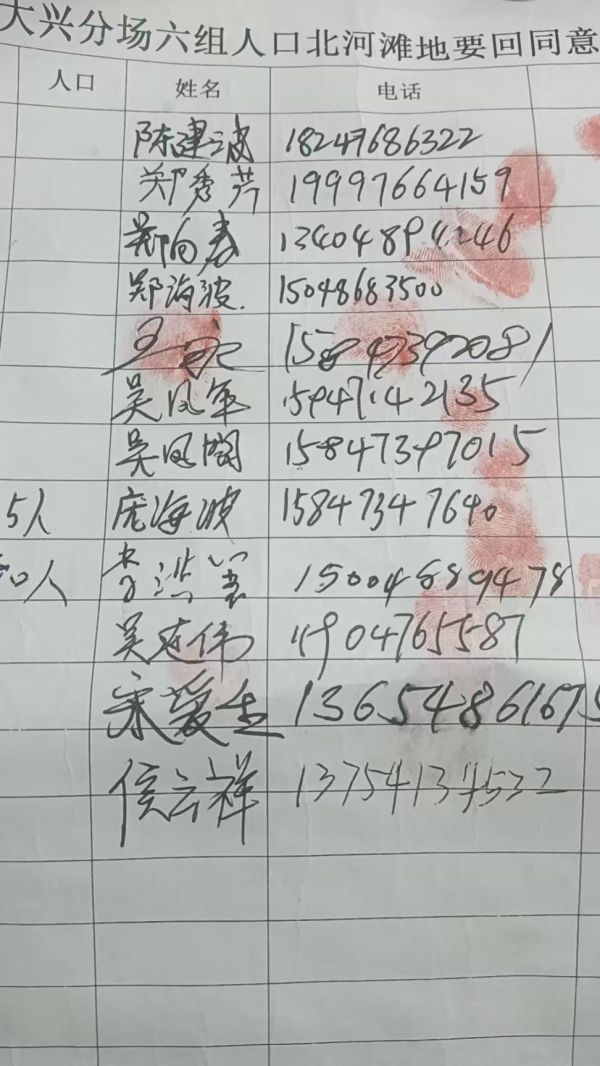 大兴分场六组人口北河滩地要回同意
人口 姓名 电话
陈建波 18247686322
郑秀芹 19997664159
郑向春 13404894246
郑海波 15048683500
王永 15847392081
吴凤军 15947142135
吴凤阁 15847397015
5人 庞海波 15847347640
0人 李洪 15004889478
吴延伟 11904765587
宋爱生 13654861675
侯云祥 13754134532